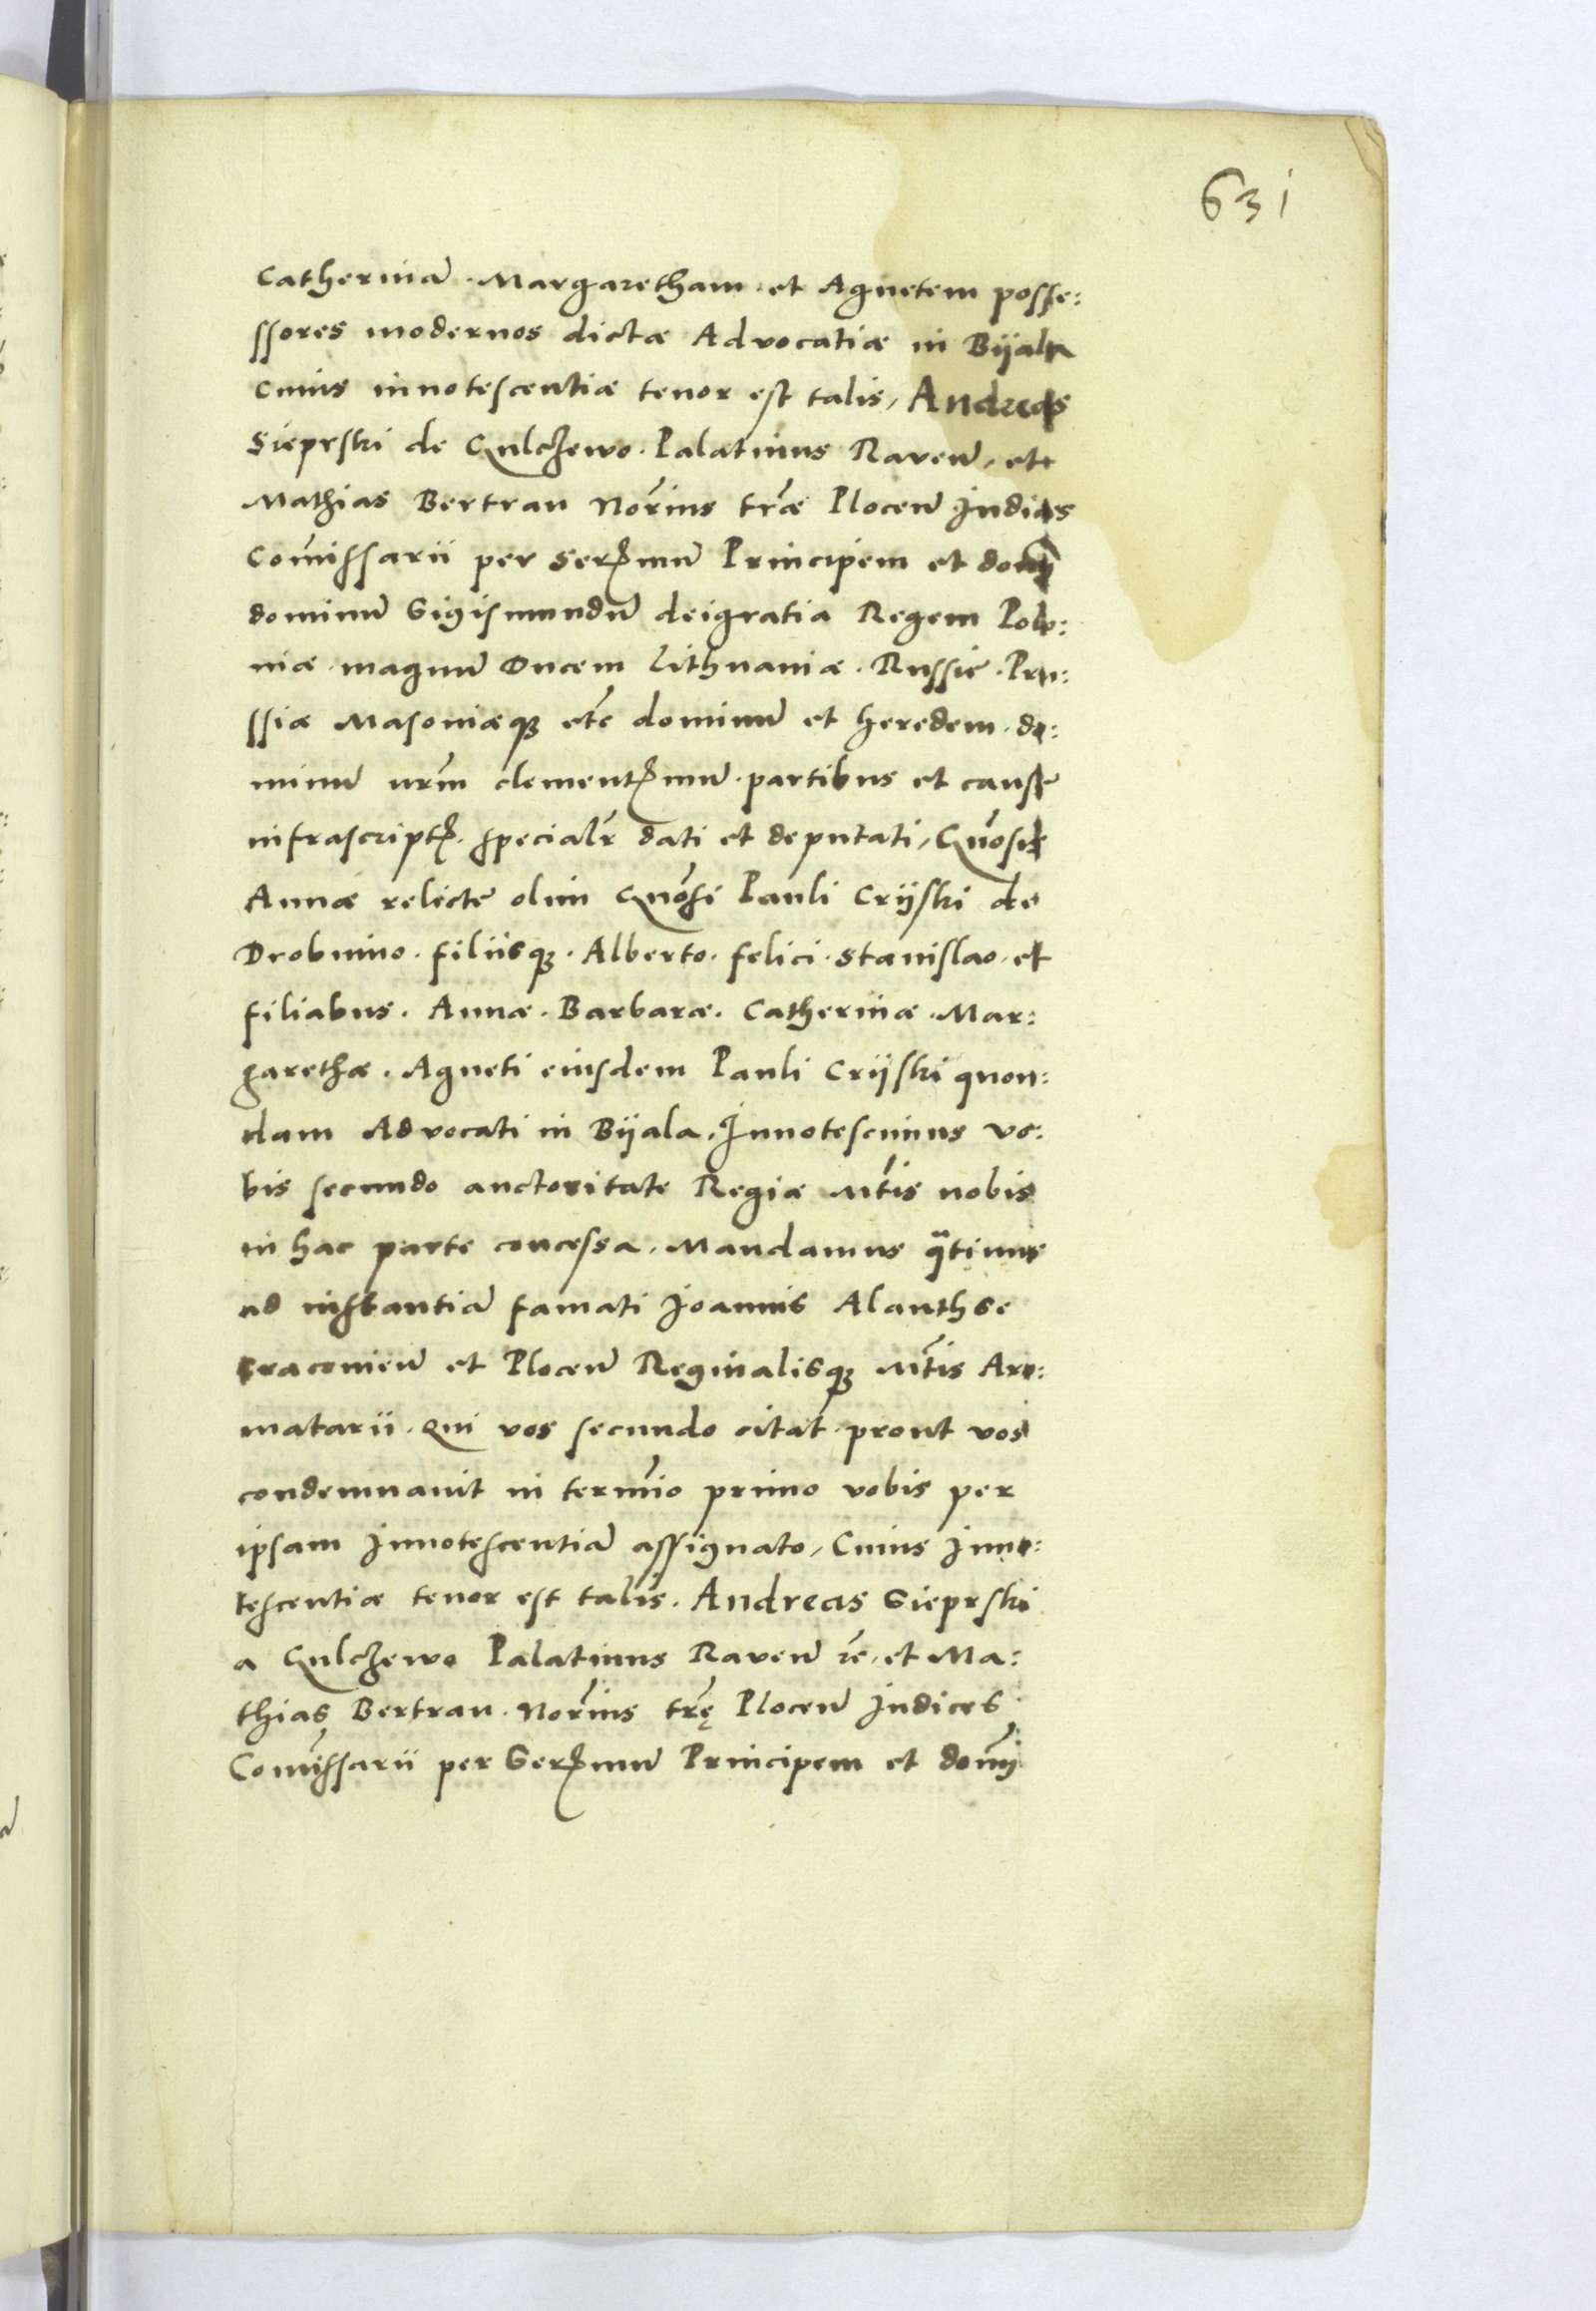 631
Catherinā · Margaretham · et Agnetem posse:
ssores modernos dictæ Advocatiæ in Bijala
Cuius innotescentiæ tenor est talis, Andreas
Sieprski de Gulczewo · Palatinus Raveñ, etc
Mathias Bertran Nōrius trāe Ploceñ Iudices
Comīssarii per Serꝫmū Principem et domī
dominū Sigismundū dei gratia Regem Polo:
niæ · magnū Ducem Lithuaniæ · Russiæ · Pru:
ssiæ Masoniæqꝫ etc̄ dominū et heredem · do:
minū nrm̄ clementꝫmū · partibus et causæ
infrascriptꝫ · specialr̄ dati et deputati, Gn̄osæ
Annæ relictæ olim Gn̄osi Pauli Crijski de
Drobnino · filiisqꝫ · Alberto · felici · Stanislao · et
filiabus · Annæ · Barbaræ · Catherinæ · Mar:
garethæ · Agneti eiusdem Pauli Crijski quon:
dam Advocati in Bijala, Innotescimus vo:
bis secundo auctoritate Regiæ Mtīs nobis
in hac parte concessa, Mandamus q̄tinus
ad instantiā famati Joannis Alanthse
Cracovieñ et Ploceñ Reginalisqꝫ Mtīs Aro:
matarii · Qui vos secundo citat · prout vos
condemnavit in termīo primo vobis per
ipsam Innotescentiā assignato, Cuius Inno:
tescentiæ tenor est talis. Andreas Sieprski
a Gulczewo Palatinus Raveñ rē, et Ma:
thias Bertran · Nōrius trē Ploceñ Iudices
Comīssarii per Serꝫmū Principem et domī